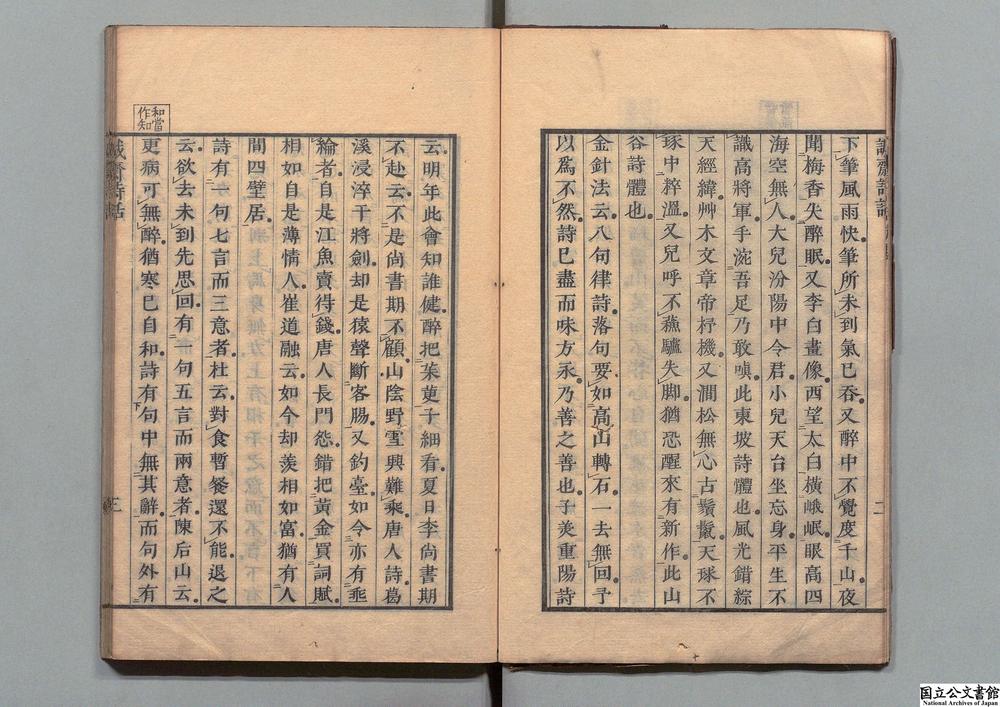 誠齋詩話
二
下筆風雨快筆所未到氣已吞又醉中不覺度千山夜
聞梅香失醉眠又李白畫像西望太白橫峨岷眼高四
海空無人大兒汾陽中令君小兒天台坐忘身平生不
識高將軍手涴吾足乃敢嗔此東坡詩體也風光錯綜
天經緯艸木文章帝杼機又澗松無心古鬚鬣天球不
琢中粹溫又兒呼不蘓驢失脚猶恐醒來有新作此山
谷詩體也
金針法云八句律詩落句要如高山轉石一去無回予
以爲不然詩已盡而味方永乃善之善也子美重陽詩
云明年此會知誰健醉把茱萸子細看夏日李尚書期
不赴云不是尚書期不顧山陰野雪興難乘唐人詩葛
溪浸淬干將劍却是猿聲斷客腸又釣臺如今亦有乖
綸者自是江魚賣得錢唐人長門怨錯把黃金買詞賦
相如自是薄情人崔道融云如今却羨相如富猶有人
間四壁居
詩有一句七言而三意者杜云對食暫餐還不能退之
云欲去未到先思回有一句五言而兩意者陳后山云
更病可無醉猶寒已自和詩有句中無其辭而句外有
和當
作知
誠齋詩話
三
下
国立公文書館
National Archives of Japan